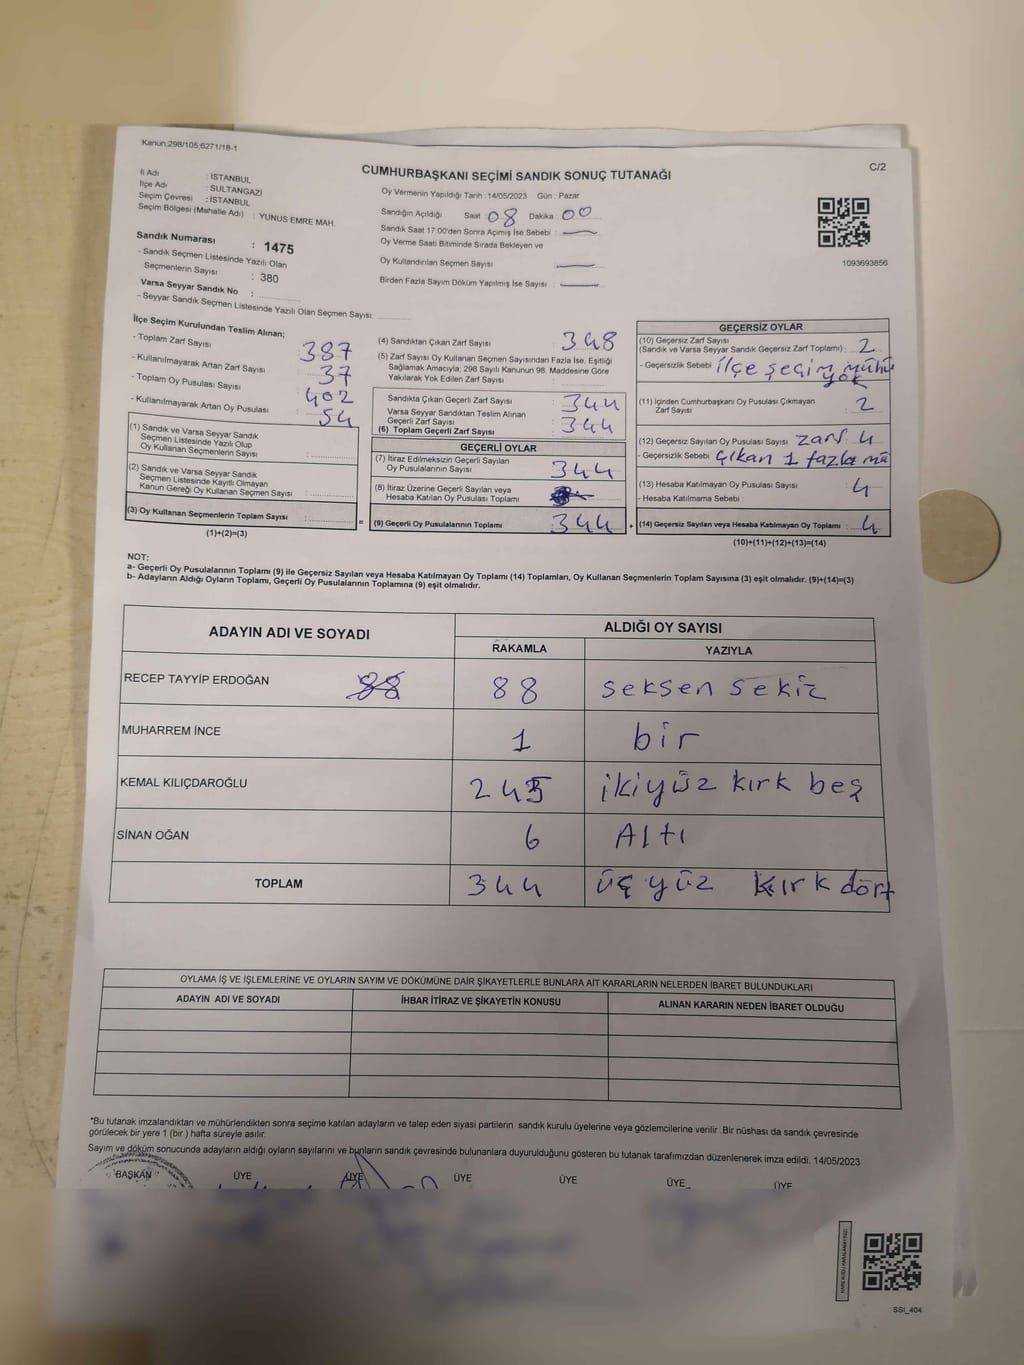 Kanun;298/105;6271/18-1
C/2
CUMHURBAŞKANI SEÇİMİ SANDIK SONUÇ TUTANAĞI
İl Adı : İSTANBUL
İlçe Adı : SULTANGAZİ
Seçim Çevresi : İSTANBUL
Seçim Bölgesi (Mahalle Adı) : YUNUS EMRE MAH.
Sandık Numarası : 1475
- Sandık Seçmen Listesinde Yazılı Olan
Seçmenlerin Sayısı : 380
Varsa Seyyar Sandık No :
- Seyyar Sandık Seçmen Listesinde Yazılı Olan Seçmen Sayısı:
Oy Vermenin Yapıldığı Tarih : 14/05/2023 Gün : Pazar
Sandığın Açıldığı Saat : 08 Dakika : 00
Sandık Saat 17:00'den Sonra Açımış İse Sebebi :
Oy Verme Saati Bitiminde Sırada Bekleyen ve
Oy Kullandırılan Seçmen Sayısı
Birden Fazla Sayım Döküm Yapılmış İse Sayısı :
1093693856
İlçe Seçim Kurulundan Teslim Alınan;
- Toplam Zarf Sayısı : 387
- Kullanılmayarak Artan Zarf Sayısı : 37
- Toplam Oy Pusulası Sayısı : 402
- Kullanılmayarak Artan Oy Pusulası : 54
(1) Sandık ve Varsa Seyyar Sandık
Seçmen Listesinde Yazılı Olup
Oy Kullanan Seçmenlerin Sayısı :
(2) Sandık ve Varsa Seyyar Sandık
Seçmen Listesinde Kayıtlı Olmayan
Kanun Gereği Oy Kullanan Seçmen Sayısı :
(3) Oy Kullanan Seçmenlerin Toplam Sayısı :
(1)+(2)=(3)
(4) Sandıktan Çıkan Zarf Sayısı : 348
(5) Zarf Sayısı Oy Kullanan Seçmen Sayısından Fazla İse, Eşitliği
Sağlamak Amacıyla; 298 Sayılı Kanunun 98. Maddesine Göre
Yakılarak Yok Edilen Zarf Sayısı :
Sandıkta Çıkan Geçerli Zarf Sayısı : 344
Varsa Seyyar Sandıktan Teslim Alınan
Geçerli Zarf Sayısı :
(6) Toplam Geçerli Zarf Sayısı : 344
GEÇERLİ OYLAR
(7) İtiraz Edilmeksizin Geçerli Sayılan
Oy Pusulalarının Sayısı : 344
(8) İtiraz Üzerine Geçerli Sayılan veya
Hesaba Katılan Oy Pusulası Toplamı :
= (9) Geçerli Oy Pusulalarının Toplamı : 344 +
GEÇERSİZ OYLAR
(10) Geçersiz Zarf Sayısı
(Sandık ve Varsa Seyyar Sandık Geçersiz Zarf Toplamı) : 2
- Geçersizlik Sebebi : ilçe seçim mühü
yok
(11) İçinden Cumhurbaşkanı Oy Pusulası Çıkmayan
Zarf Sayısı : 2
(12) Geçersiz Sayılan Oy Pusulası Sayısı : zarf 4
- Geçersizlik Sebebi : Çıkan 1 fazla mü
(13) Hesaba Katılmayan Oy Pusulası Sayısı : 4
- Hesaba Katılmama Sebebi :
(14) Geçersiz Sayılan veya Hesaba Katılmayan Oy Toplamı : 4
(10)+(11)+(12)+(13)=(14)
NOT:
a- Geçerli Oy Pusulalarının Toplamı (9) ile Geçersiz Sayılan veya Hesaba Katılmayan Oy Toplamı (14) Toplamları, Oy Kullanan Seçmenlerin Toplam Sayısına (3) eşit olmalıdır. (9)+(14)=(3)
b- Adayların Aldığı Oyların Toplamı, Geçerli Oy Pusulalarının Toplamına (9) eşit olmalıdır.
ADAYIN ADI VE SOYADI ALDIĞI OY SAYISI
RAKAMLA YAZIYLA
RECEP TAYYİP ERDOĞAN 88 88 seksen sekiz
MUHARREM İNCE 1 bir
KEMAL KILIÇDAROĞLU 245 ikiyüz kırk beş
SİNAN OĞAN 6 Altı
TOPLAM 344 üç yüz kırk dört
OYLAMA İŞ VE İŞLEMLERİNE VE OYLARIN SAYIM VE DÖKÜMÜNE DAİR ŞİKAYETLERLE BUNLARA AİT KARARLARIN NELERDEN İBARET BULUNDUKLARI
ADAYIN ADI VE SOYADI İHBAR İTİRAZ VE ŞİKAYETİN KONUSU ALINAN KARARIN NEDEN İBARET OLDUĞU
*Bu tutanak imzalandıktan ve mühürlendikten sonra seçime katılan adayların ve talep eden siyasi partilerin sandık kurulu üyelerine veya gözlemcilerine verilir .Bir nüshası da sandık çevresinde
görülecek bir yere 1 (bir ) hafta süreyle asılır.
Sayım ve döküm sonucunda adayların aldığı oyların sayılarını ve bunların sandık çevresinde bulunanlara duyurulduğunu gösteren bu tutanak tarafımızdan düzenlenerek imza edildi. 14/05/2023
BAŞKAN ÜYE ÜYE ÜYE ÜYE ÜYE ÜYE
SSI_404